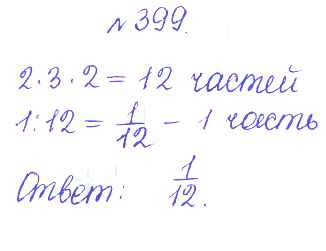 № 399.
2·3·2 = 12 частей
1:12 = 1/12 – 1 часть
Ответ: 1/12.